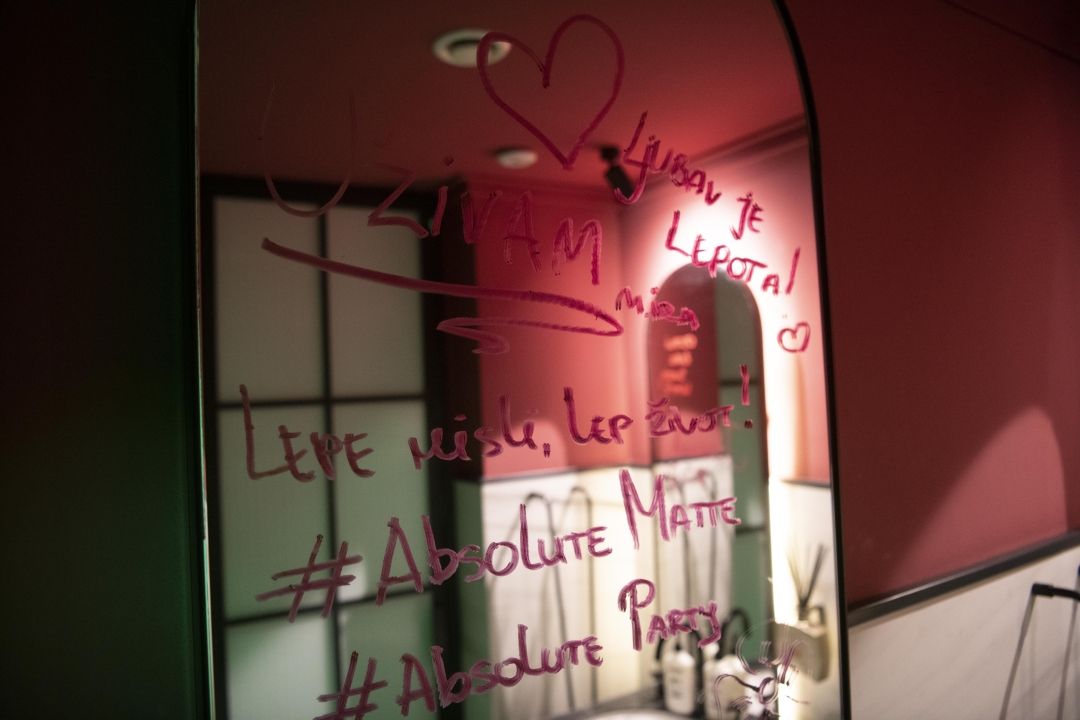 UŽIVAM
LJUBAV JE
LEPOTA!
MIRA
LEPE misli, LEP život!
#Absolute Matte
#Absolute Party